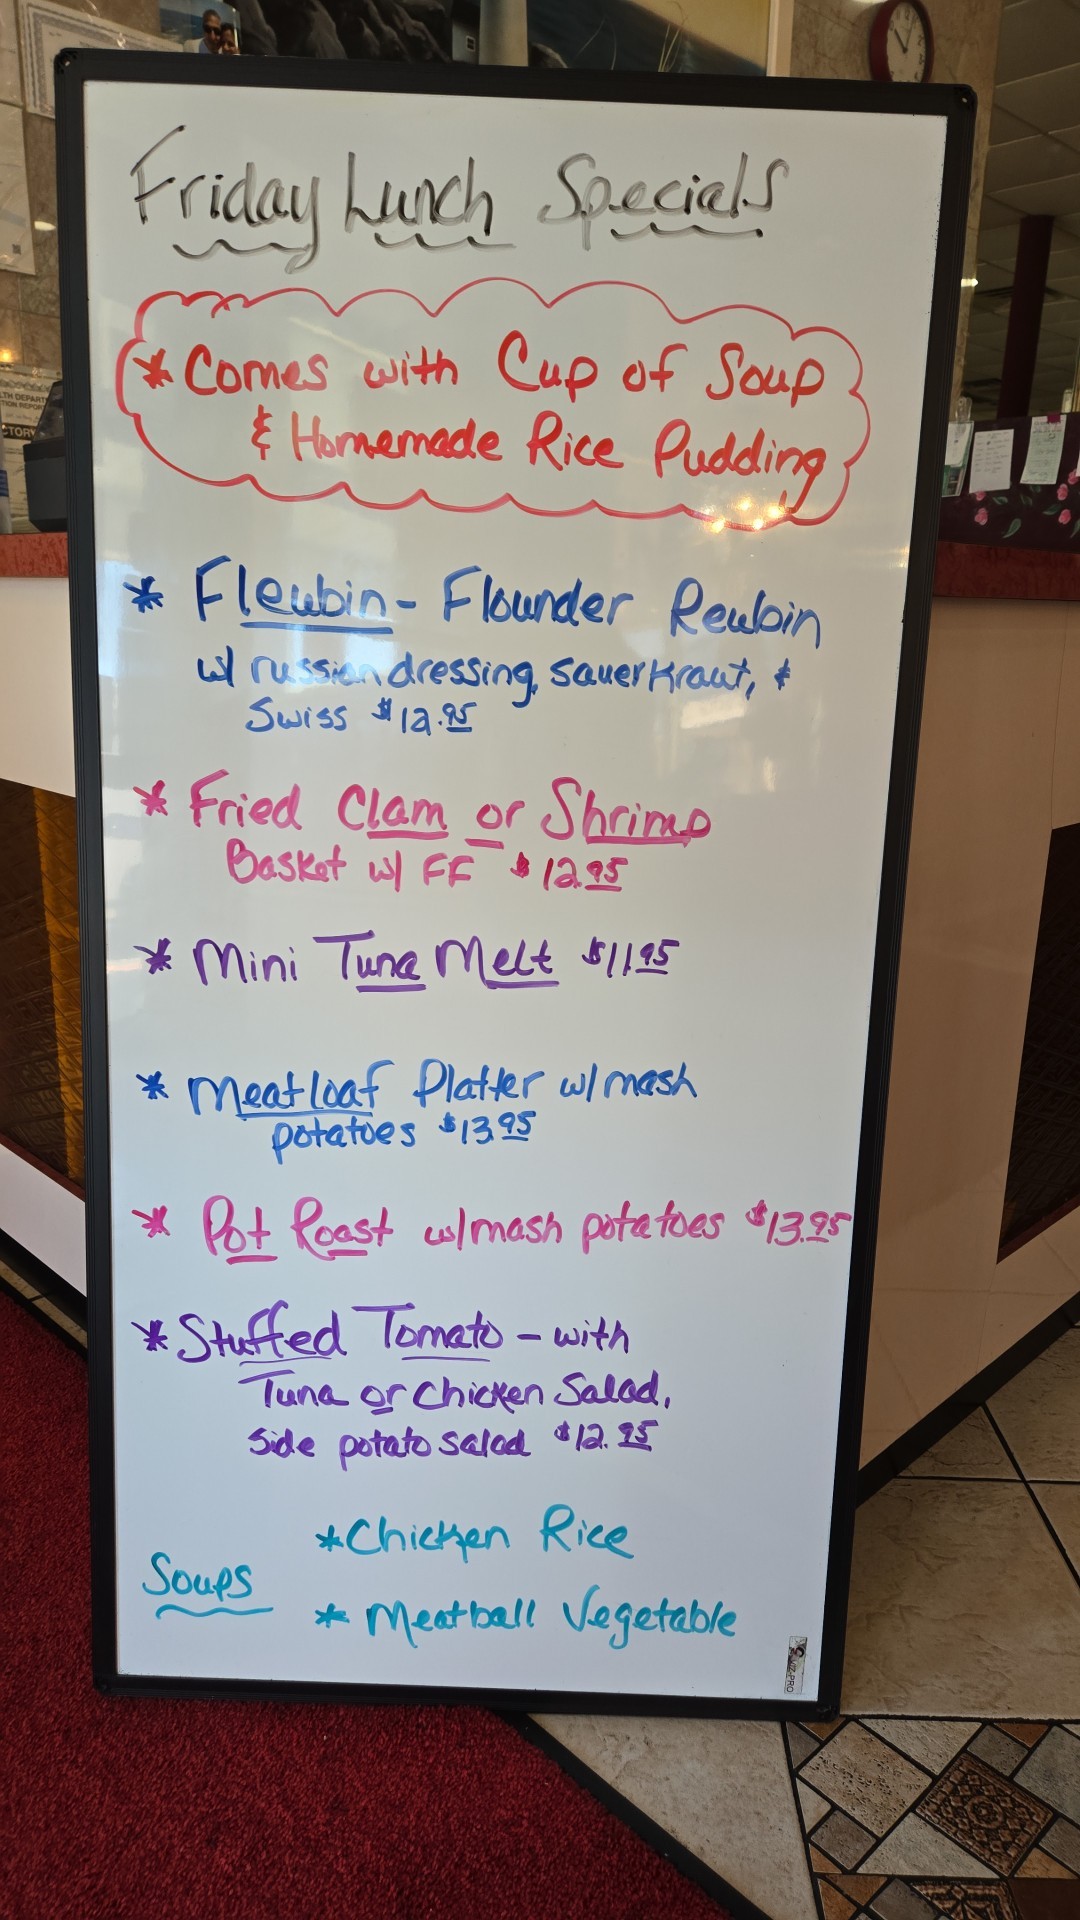 Friday Lunch Specials
* Comes with Cup of Soup
& Homemade Rice Pudding
* Fleubin - Flounder Reubin
w/ russian dressing, sauerkraut, &
Swiss $12.95
* Fried Clam or Shrimp
Basket w/ FF $12.95
* Mini Tuna Melt $11.95
* Meatloaf Platter w/mash
potatoes $13.95
* Pot Roast w/mash potatoes $13.95
* Stuffed Tomato - with
Tuna or Chicken Salad,
side potato salad $12.95
Soups
* Chicken Rice
* Meatball Vegetable
VIZ-PRO